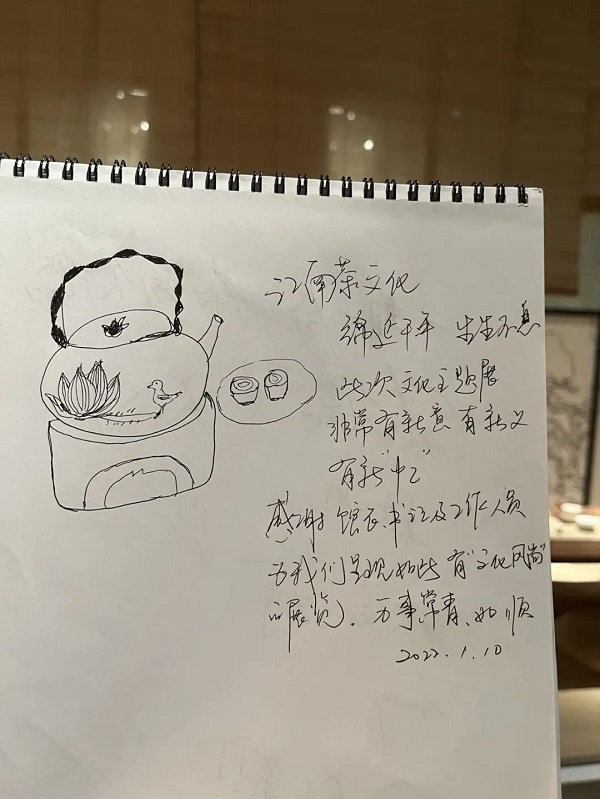 江南茶文化
绵延千年 生生不息
此次文化主题展
非常有新意 有新义
有新“中工”
感谢馆长、书记及工作人员
为我们呈现如此有“文化风尚”
的展览。万事常青、如顺
2022.1.10